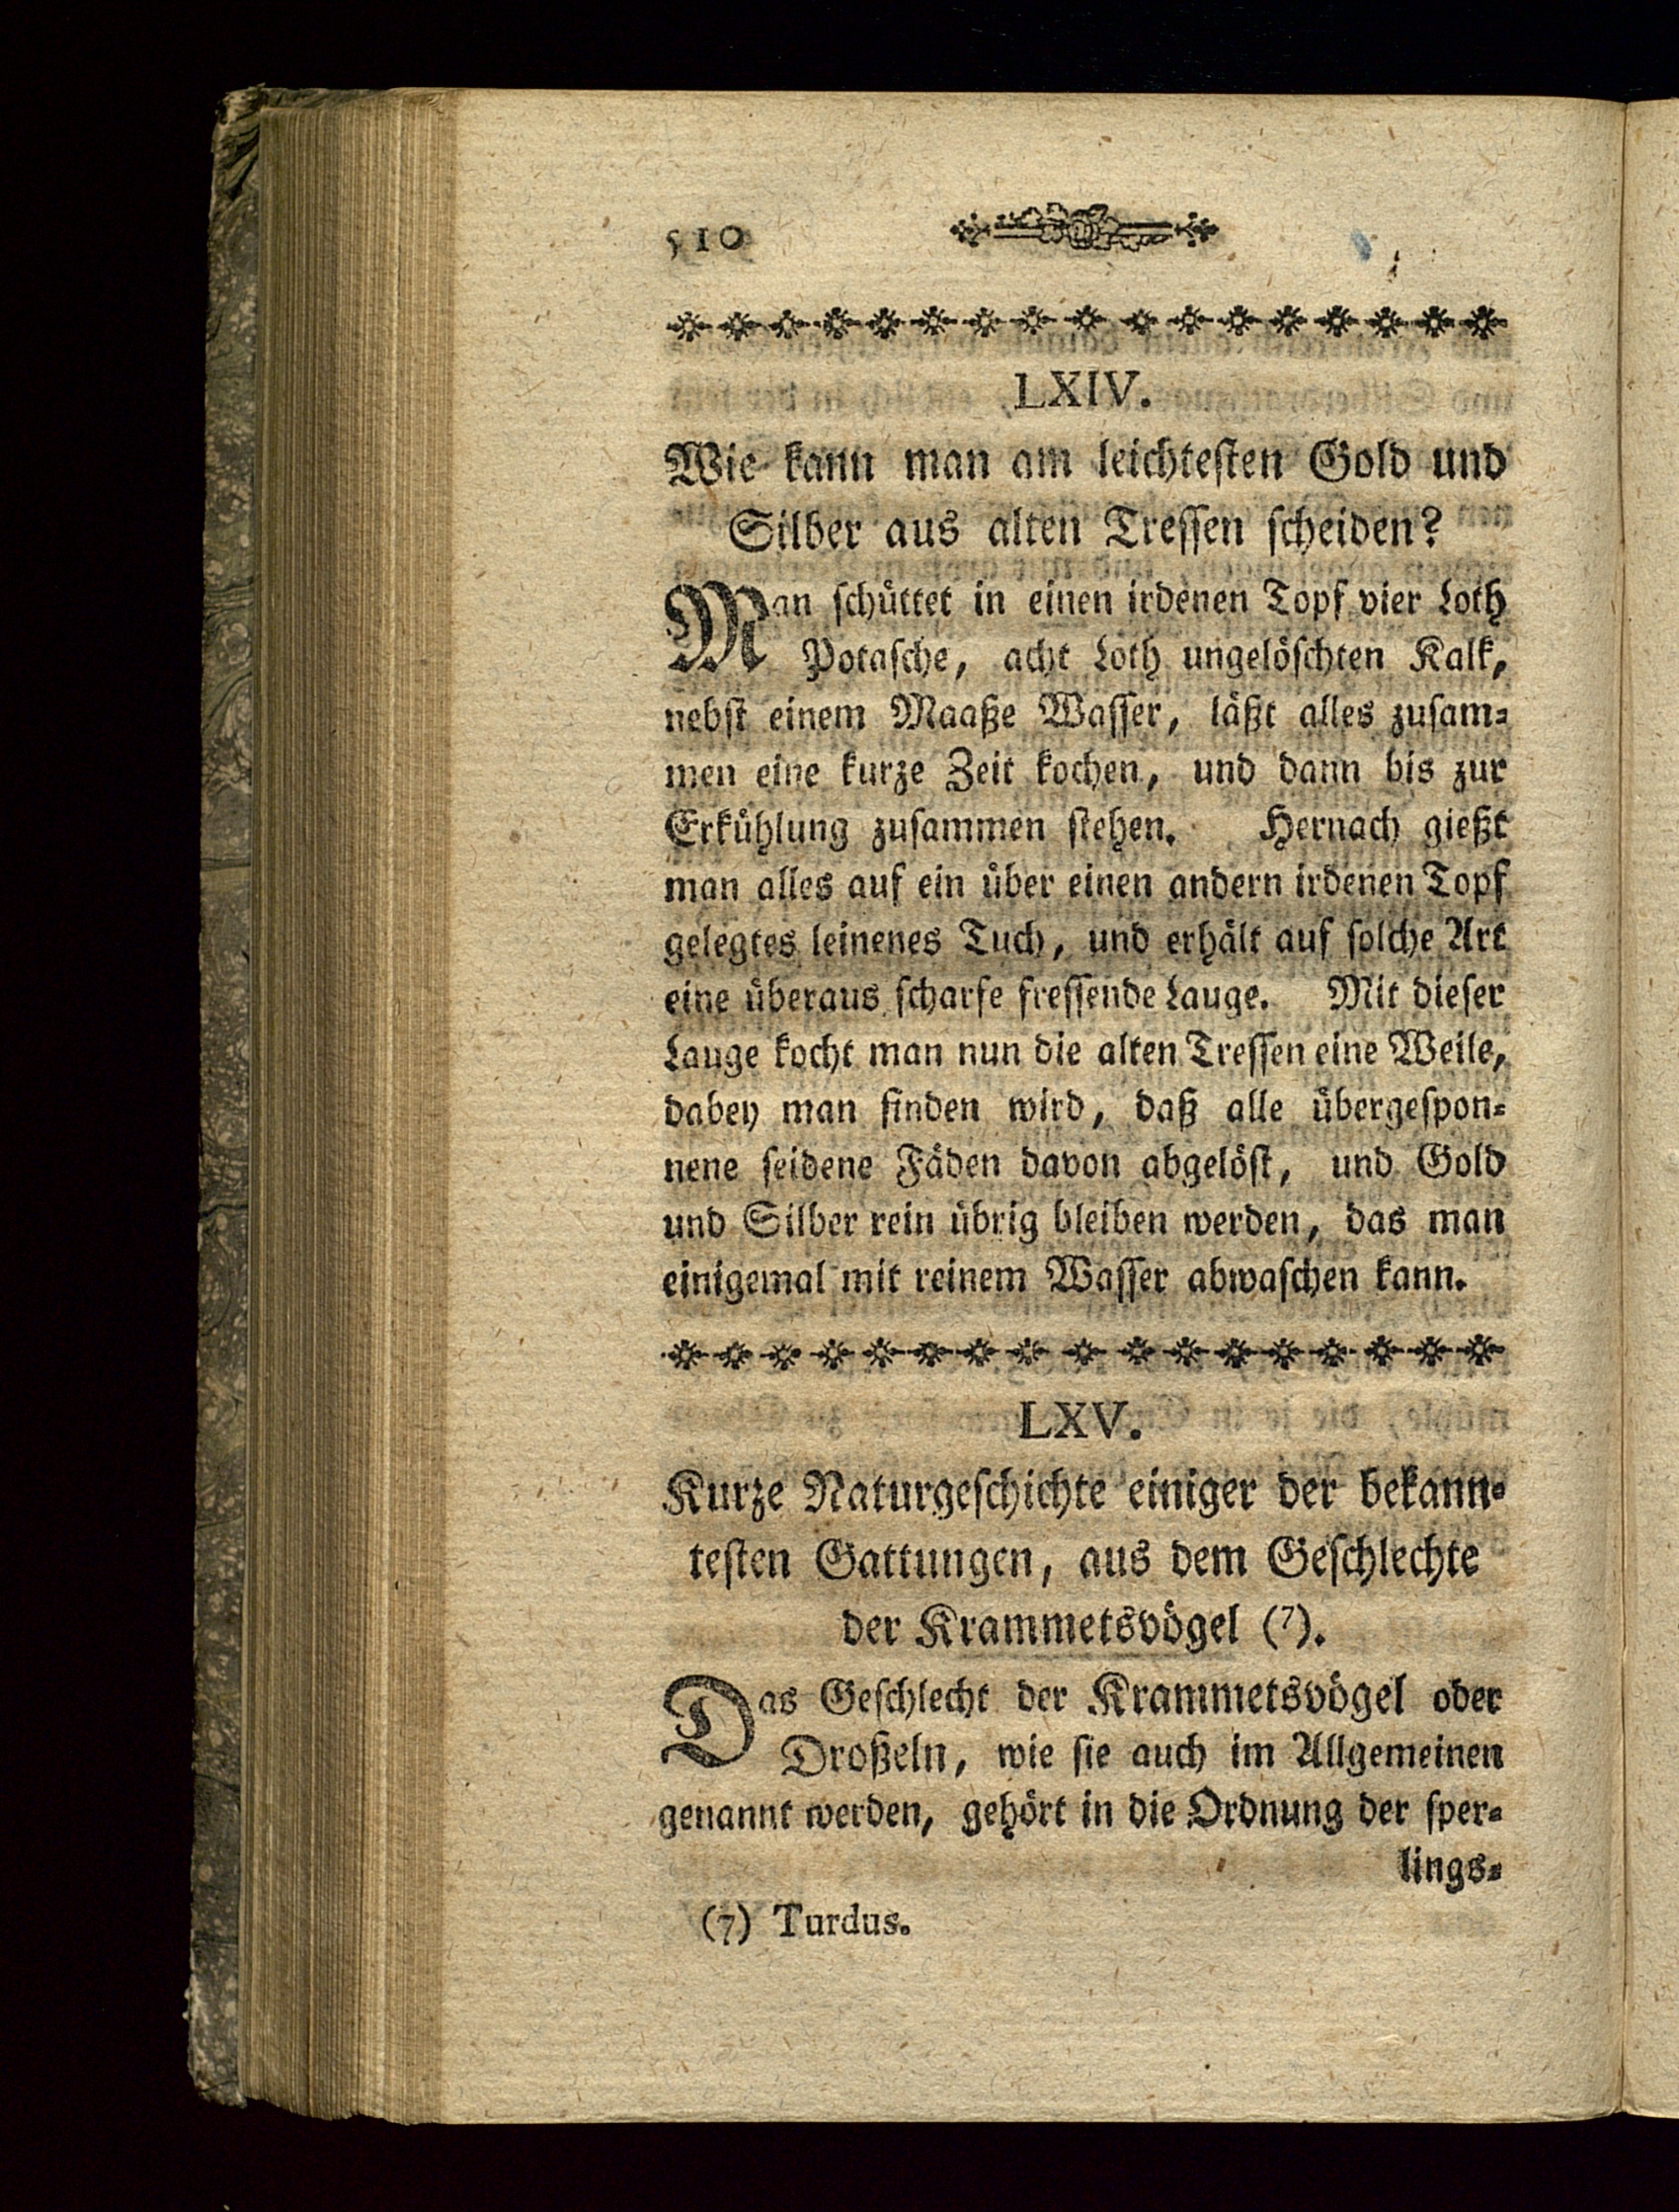 510
LXIV.
Wie kann man am leichtesten Gold und
Silber aus alten Tressen scheiden?
Man schüttet in einen irdenen Topf vier Loth
Potasche, acht Loth ungelöschten Kalk,
nebst einem Maaße Wasser, läßt alles zusam⸗
men eine kurze Zeit kochen, und dann bis zur
Erkühlung zusammen stehen. Hernach gießt
man alles auf ein über einen andern irdenen Topf
gelegtes leinenes Tuch, und erhält auf solche Art
eine überaus scharfe fressende Lauge. Mit dieser
Lauge kocht man nun die alten Tressen eine Weile,
dabey man finden wird, daß alle übergespon⸗
nene seidene Fäden davon abgelöst, und Gold
und Silber rein übrig bleiben werden, das man
einigemal mit reinem Wasser abwaschen kann.
LXV.
Kurze Naturgeschichte einiger der bekann⸗
testen Gattungen, aus dem Geschlechte
der Krammetsvögel (7).
Das Geschlecht der Krammetsvögel oder
Droßeln, wie sie auch im Allgemeinen
genannt werden, gehört in die Ordnung der sper⸗
lings⸗
(7) Turdus.